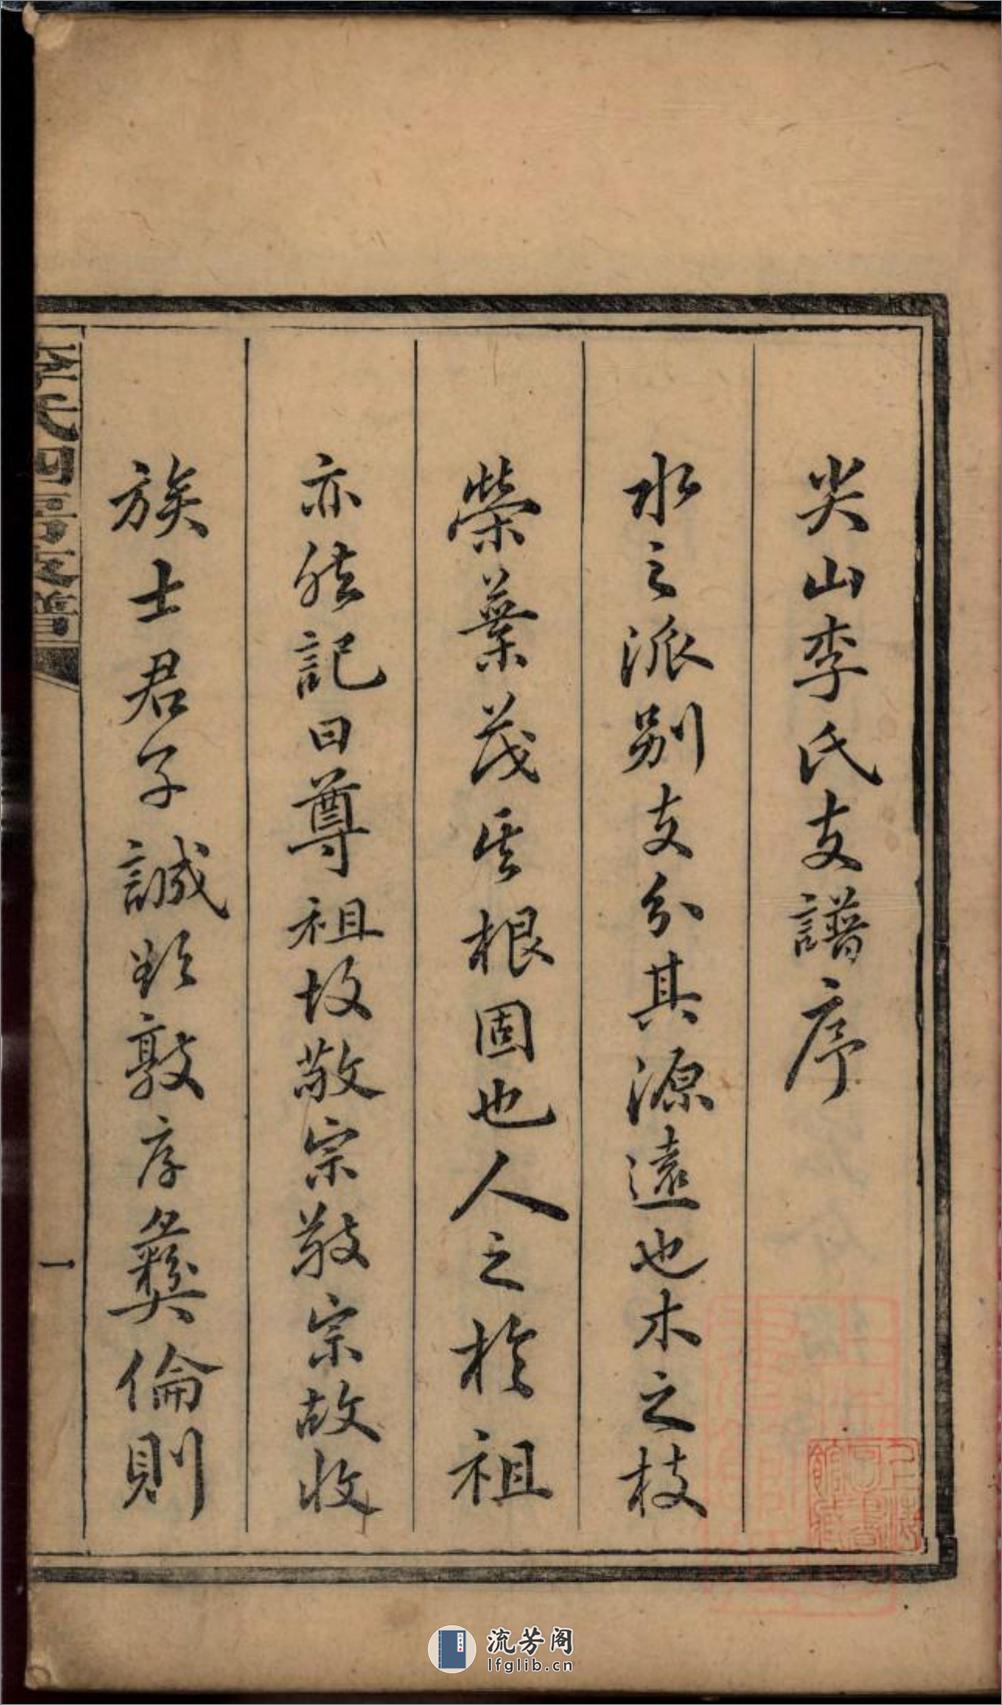 尖山李氏支譜序
水之派别支分其源遠也木之枝
榮葉茂其根固也人之於祖
亦然記曰尊祖故敬宗敬宗故收
族士君子誠欲敦序彝倫則
李氏四房支譜
一
流芳阁
lfglib.cn